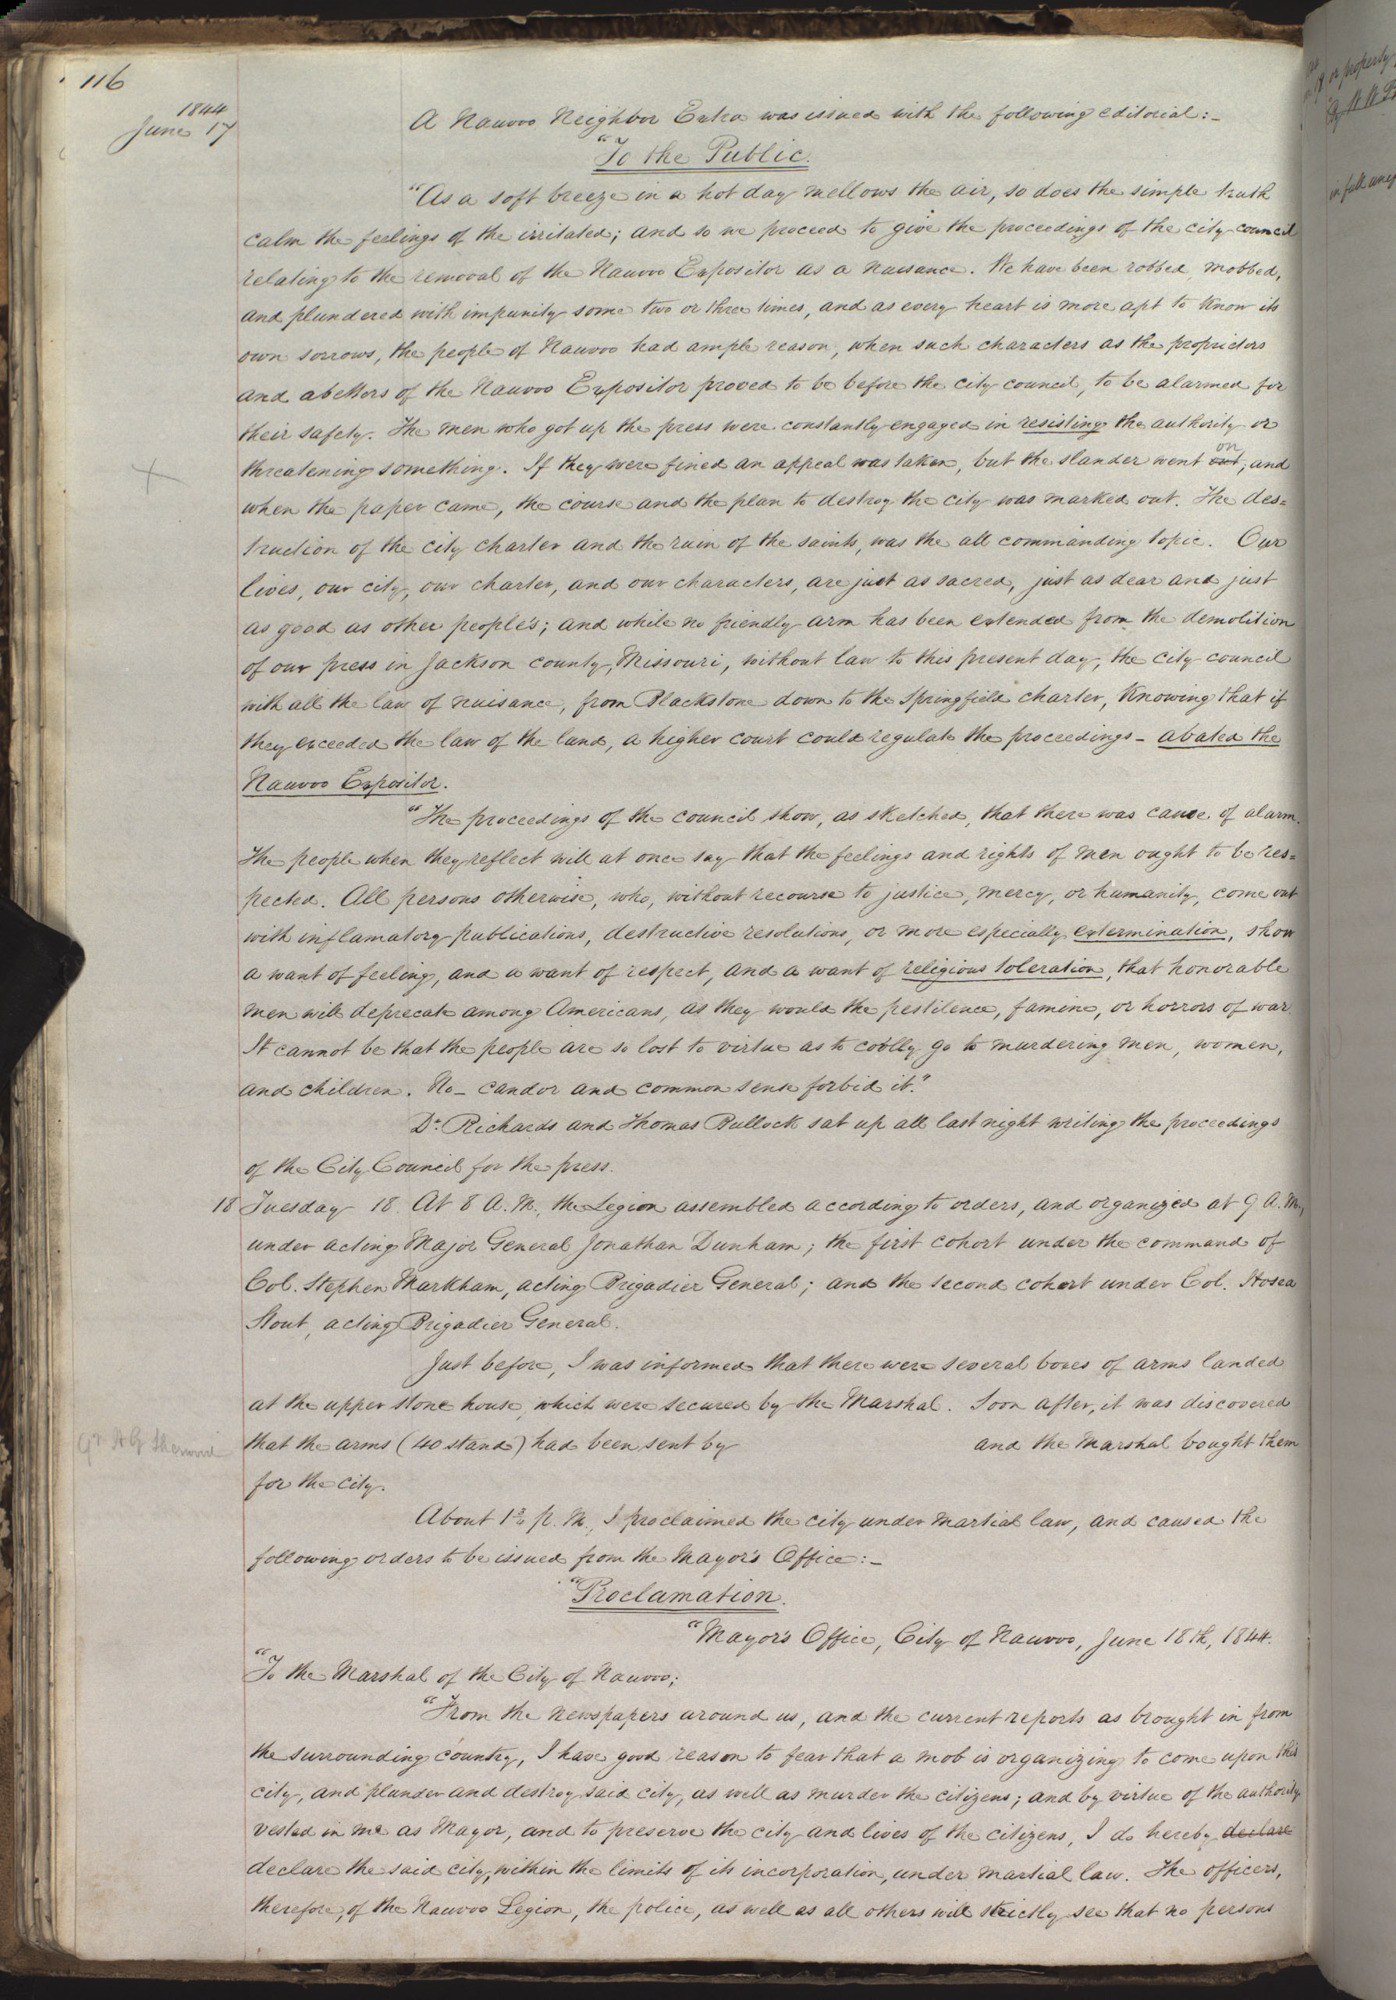 116
1844
June 17
A Nauvoo Neighbor Extra was issued with the following editorial:–
"To the Public.
"As a soft breeze in a hot day mellows the air, so does the simple truth
calm the feelings of the irritated; and so we proceed to give the proceedings of the city council
relating to the removal of the Nauvoo Expositor as a nuisance. We have been robbed, mobbed,
and plundered with impunity some two or three times, and as every heart is more apt to know its
own sorrows, the people of Nauvoo had ample reason, when such characters as the proprietors
and abettors of the Nauvoo Expositor proved to be before the city council, to be alarmed for
their safety. The men who got up the press were constantly engaged in resisting the authority or
threatening something. If they were fined an appeal was taken, but the slander went out on; and
when the paper came, the course and the plan to destroy the city was marked out. The des=
truction of the city charter and the ruin of the saints, was the all commanding topic. Our
lives, our city, our charter, and our characters, are just as sacred, just as dear and just
as good as other people's; and while no friendly arm has been extended from the demolition
of our press in Jackson county, Missouri, without law to this present day, the city council
with all the law of nuisance, from Blackstone down to the Springfield charter, knowing that if
they exceeded the law of the land, a higher court could regulate the proceedings– abated the
Nauvoo Expositor.
"The proceedings of the council show, as sketched, that there was cause of alarm.
The people when they reflect will at once say that the feelings and rights of men ought to be res=
pected. All persons otherwise, who, without recourse to justice, mercy, or humanity, come out
with inflamatory publications, destructive resolutions, or more especially extermination, show
a want of feeling, and a want of respect, and a want of religious toleration, that honorable
men will deprecate among Americans, as they would the pestilence, famine, or horrors of war.
It cannot be that the people are so lost to virtue as to coolly go to murdering men, women,
and children. No– candor and common sense forbid it."
Dr. Richards and Thomas Bullock sat up all last night writing the proceedings
of the City Council for the press.
18 Tuesday 18. At 8 A.M., the Legion assembled according to orders, and organized at 9 A.M.,
under acting Major General Jonathan Dunham; the first cohort under the command of
Col. Stephen Markham, acting Brigadier General; and the second cohort under Col. Hosea
Stout, acting Brigadier General.
Just before, I was informed that there were several boxes of arms landed
at the upper stone house, which were secured by the Marshal. Soon after, it was discovered
that the arms (40 stand) had been sent by and the Marshal bought them
for the city.
About 1¾ p.m., I proclaimed the city under martial law, and caused the
following orders to be issued from the Mayor's Office:–
"Proclamation.
"Mayor's Office, City of Nauvoo, June 18th, 1844.
"To the Marshal of the City of Nauvoo;
"From the newspapers around us, and the current reports as brought in from
the surrounding country, I have good reason to fear that a mob is organizing to come upon this
city, and plunder and destroy said city, as well as murder the citizens; and by virtue of the authority
vested in me as Mayor, and to preserve the city and lives of the citizens, I do hereby declare
declare the said city, within the limits of its incorporation, under martial law. The officers,
therefore, of the Nauvoo Legion, the police, as well as all others will strictly see that no persons
or property